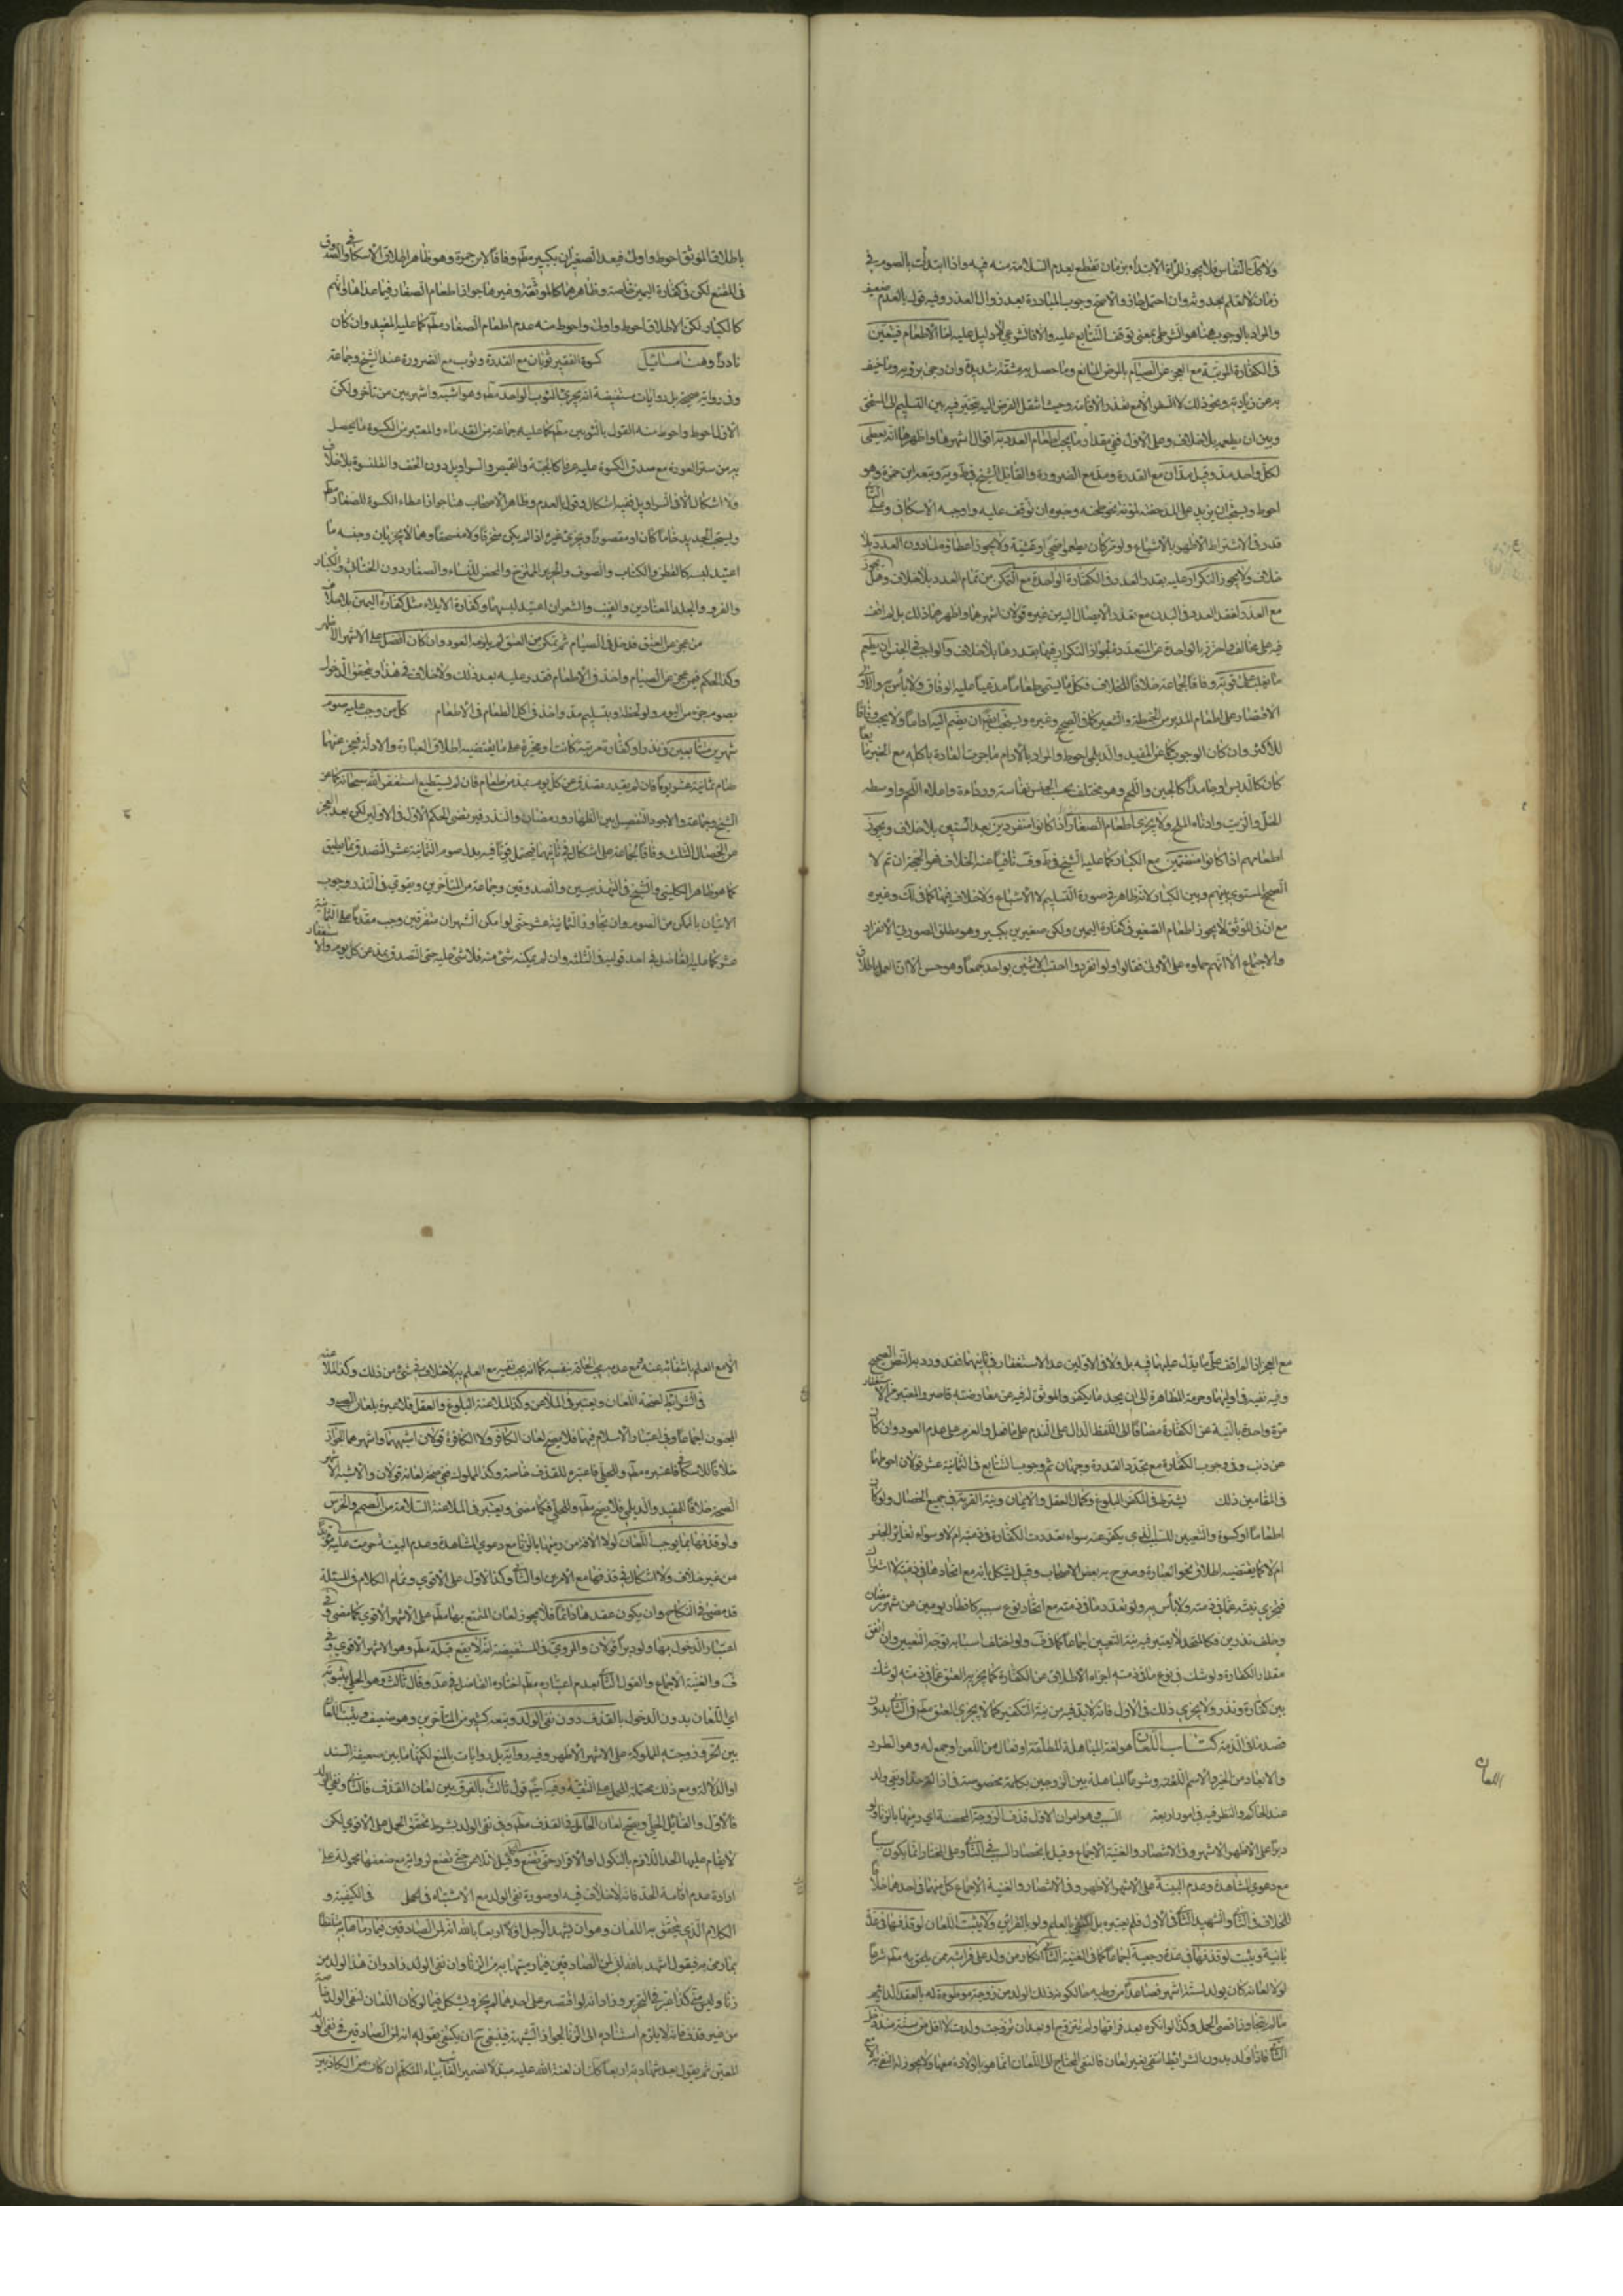 ولا كذلك النفاس فلا يجوز للمرأة الابتداء بزمان تقطع بعدم السلامة منه فيه واذا ابتدأت بالصوم في
زمان لا تعلم بحدوثه وان احتمل جاز والاصح وجوب المبادرة بعد زوال العذر وفيه قول بالعدم ضعيف
والمراد بالوجوب هنا هو الشرطي بمعنى توقف التتابع عليه والا فالشرعي لا دليل عليه اما الاطعام فيتعين
في الكفارة المرتبة مع العجز عن الصيام بالمرض المانع وما حصل به مشقة شديدة وان رجى برؤه وما خيف
به من زيادته ونحو ذلك لا السفر الا مع تعذر الاقامة وحيث انتقل الفرض اليه تخير فيه بين التسليم الى المستحق
وبين ان يطعمه بلا خلاف وعلى الاول ففي مقدار ما يجب اطعام العدد به اقوال اشهرها واظهرها انه يعطى
لكل واحد مد وقيل مدان مع القدرة ومد مع الضرورة والقائل الشيخ في ط وية وتبعه ابن حمزة وهو
احوط ويستحب ان يزيد على المد حفنة لمؤنة نحو طحنه وخبزه ان توقف عليه واوجبه الاسكافي وعلى الثاني
قدر في الاشتراط الاظهر بالاشباع ولو مرة كان يطعم
خلاف ولا يجوز التكرار عليه بقدر العدد في الكفارة الواحدة مع التمكن من تمام العدد بلا خلاف وهل يجوز
مع العذر لفقد العدد في البلد مع تعذر الايصال اليه من غيره قولان اشهرهما واظهرهما ذلك بل لم اقف
فيه على مخالف واحترز بالواحدة عن المتعددة لجواز التكرار فيها بقدرها بلا خلاف والواجب في الجنس ان يطعم
ما يغلب على قوته وفاقا لجماعة خلافا للخلاف فكل ما يسمى طعاما مدعيا عليه الوفاق ولا بأس به والاولى
الاقتصار على اطعام المد من الحنطة والشعير كما في الصحيح وغيره ويستحب ايضا ان يضم اليه اداما ولا يجب وفاقا
للاكثر وان كان الوجوب كما عن المفيد والديلمي احوط والمراد بالادام ما جرت العادة باكله مع الخبز مايعا
كان كالدبس او جامدا كالجبن واللحم وهو مختلف بحسب الجنس نفاسة ورداءة واعلاه اللحم واوسطه
الخل والزيت وادناه الملح ولا يجزي اطعام الصغار اذا كانوا منفردين بعد الستين بلا خلاف ويجوز
اطعامهم اذا كانوا منضمين مع الكبار كما عليه الشيخ في ط وف نافيا عنه الخلاف فهو الحجة ان تم لا
الصحيح المستوي بينهم وبين الكبار لانه ظاهر في صورة التسليم لا الاشباع ولا خلاف فيها كما في لك وغيره
مع ان في الموثق لا يجوز اطعام الصغير في كفارة اليمين ولكن صغيرين بكبير وهو مطلق لصورتي الانفراد
والاجتماع الا انهم حملوه على الاولى فقالوا ولو انفردوا احتسب الاثنين بواحد جمعا وهو حسن الا ان العمل باطلاق
باطلاق الموثق احوط واولى فيعد الصغيران بكبير مطلقا وفاقا لابن حمزة وهو ظاهر اطلاق الاسكافي والصدوق
في المقنع لكن في كفارة اليمين خاصة وظاهرهما كالموثقة وغيرها جواز اطعام الصغار فيما عداها وانهم
كالكبار لكن الاطلاق احوط واولى واحوط منه عدم اطعام الصغار مطلقا كما عليه المفيد وان كان
نادرا وهنا مسائل كسوة الفقير ثوبان مع القدرة وثوب مع الضرورة عند الشيخ وجماعة
وفي رواية صحيحة بل روايات مستفيضة انه يجزي الثوب الواحد مطلقا وهو اشبه واشهر بين من تأخر ولكن
الاول احوط واحوط منه القول بالثوبين مطلقا كما عليه جماعة من القدماء والمعتبر من الكسوة ما يحصل
به من ستر العورة مع صدق الكسوة عليه عرفا كالجبة والقميص والسراويل دون الخف والقلنسوة بلا خلاف
ولا اشكال الا في السراويل ففيه اشكال وقول بالعدم وظاهر الاصحاب هنا جواز اعطاء الكسوة للصغار مطلقا
ويستحب الجديد خاما كان او مقصورا ويجزي غيره اذا لم يكن منخرقا ولا منسحقا وهما لا يجزيان وجنسه ما
اعتيد لبسه كالقطن والكتان والصوف والحرير الممتزج والمحض للنساء والصغار دون الخناثى والكبار
والفرو والجلد المعتادين والقنب والشعر ان اعتيد لبسهما وكفارة الايلاء مثل كفارة اليمين بلا خلاف
من عجز عن العتق فدخل في الصيام ثم تمكن من العتق لم يلزمه العود وان كان افضل على الاشهر الاظهر
وكذا الحكم فيمن عجز عن الصيام واخذ في الاطعام فقدر عليه بعد ذلك ولا خلاف في هذا ويتحقق الدخول
بصوم جزء من اليوم ولو لحظة وبتسليم مد واخذ في اكل الطعام في الاطعام كل من وجب عليه صوم
شهرين متتابعين في نذر او كفارة مرتبة كانت او مخيرة على ما يقتضيه اطلاق العبارة والادلة فعجز عنهما
صام ثمانية عشر يوما فان لم يقدر تصدق عن كل يوم بمد من طعام فان لم يستطع استغفر الله سبحانه كما عن
الشيخ وجماعة والاجود التفصيل بين الظهار ورمضان والنذر
عن الخصال الثلث وفاقا لجماعة على اشكال في ثانيهما
كما هو ظاهر الكليني والشيخ في التهذيبين والصدوقين وجماعة من المتأخرين ويقوى في النذر وجوب
الاتيان بالممكن من الصوم وان تجاوز الثمانية عشر حتى لو امكن الشهران متفرقين وجب مقدما على الثمانية
عشر كما عليه الفاضل في احد قوليه في الثلثة وان لم يمكنه شئ منه فلا شئ عليه حتى التصدق بمد عن كل يوم والاستغفار
مع العجز اذا لم اقف على ما يدل عليهما فيه بل ولا في الاولين عدا الاستغفار في ثانيهما فقد ورد به النص الصحيح
وفيه نفيه في اوليهما وحرمة المظاهرة الى ان يجد ما يكفر والموثق له فيه عن معارضته قاصر والمعتبر من الاستغفار
مرة واحدة بالنية عن الكفارة مضافا الى اللفظ الدال على الندم على ما فعل والعزم على عدم العود وان كان
عن ذنب وفي وجوب الكفارة مع تجدد القدرة وجهان ثم وجوب التتابع في الثمانية عشر قولان احوطهما
في المقامين ذلك يشترط في المكفر البلوغ وكمال العقل والايمان ونية القربة في جميع الخصال ولو كان
اطعاما او كسوة والتعيين للسبب الذي يكفر عنه سواء تعددت الكفارة في ذمته ام لا وسواء تغاير الجنس
ام لا كما يقتضيه اطلاق نحو العبارة وصرح به بعض الاصحاب وقيل يشكل بانه مع اتحادها في ذمته لا اشتراك
فتجزي نيته عما في ذمته ولا بأس به ولو تعدد ما في ذمته مع اتحاد نوع سببه كافطار يومين من شهر رمضان
وخلف نذرين فكالمتحد لا يعتبر فيه نية التعيين اجماعا كما في ف ولو اختلف اسبابه توجه التعيين وان اتفق
مقدار الكفارة ولو شك في نوع ما في ذمته اجزاه الاطلاق عن الكفارة كما يجزيه العتق عما في ذمته لو شك
بين كفارة ونذر ولا يجزي ذلك في الاول فانه لابد فيه من نية التكفير كما لا يجزي العتق مطلقا في الثاني بدون
قصد ما في الذمة كتاب اللعان هو لغة المباهلة المطلقة او فعال من اللعن او جمع له وهو الطرد
والابعاد من الخير والاسم اللعنة وشرعا المباهلة بين الزوجين بكلمة مخصوصة في ازالة حد او نفي ولد
عند الحاكم والنظر فيه في امور اربعة السبب وهو امران الاول قذف الزوجة المحصنة اي رميها بالزنا ولو
دبرا على الاظهر الاشهر وفي الانتصار والغنية الاجماع وقيل بانحصار السبب في الثاني وعلى المختار انما يكون سببا
مع دعوى المشاهدة وعدم البينة على الاشهر الاظهر وفي الانتصار والغنية الاجماع كل منهما في احدهما خلافا
للخلاف في الثاني والشهيد الثاني في الاول فلم يعتبره بل اكتفى بالعلم ولو بالقرائن ولا يثبت اللعان لو قذفها في عدة
بائنة ويثبت لو قذفها في عدة رجعية اجماعا كما في الغنية الثاني انكار من ولد على فراشه ممن يلحق به مطلقا شرعا
لولا لعانه كان يولد لستة اشهر فصاعدا من وطيه حالكونه ذلك الولد من زوجة موطوءة له بالعقد الدائم
ما لم يتجاوز اقصى الحمل وكذا لو انكره بعد فراقها ولم تتزوج او بعد ان تزوجت وولدت لاقل من ستة منذ دخل
الثاني فاذا ولد بدون الشرائط انتفى بغير لعان فالنفي المحتاج الى اللعان انما هو بالولادة معها ولا يجوز له النفي
اللعان
الا مع العلم بانتفائه عنه ومع عدمه يجب الحاقه بنفسه كما انه يجب نفيه مع العلم به بلا خلاف في شئ من ذلك وكذا الملاعنة
في الشرائط لصحة اللعان ويعتبر في الملاعن وكذا الملاعنة البلوغ والعقل فلا عبرة بلعان الصبي و
المجنون اجماعا وفي اعتبار الاسلام فيهما فلا يصح لعان الكافر ولا الكافرة قولان اشبههما واشهرهما الجواز
خلافا للاسكافي فاعتبره مطلقا والحلي فاعتبره للقذف خاصة وكذا المملوك ففي صحة لعانه قولان والاشبه الاشهر
الصحة خلافا للمفيد والديلمي فلا يصح مطلقا والحلي فكما مضى ويعتبر في الملاعنة السلامة من الصمم والخرس
ولو قذفها بما يوجب اللعان لولا الآفة من رميها بالزنا مع دعوى المشاهدة وعدم البينة حرمت عليه مؤبدا
من غير خلاف ولا اشكال في قذفها مع الامرين او الثاني وكذا الاول على الاقوى وتمام الكلام في المسئلة
قد مضى في النكاح وان يكون عقدها دائما فلا يجوز لعان المتمتع بها مطلقا على الاشهر الاقوى كما مضى وفي
اعتبار الدخول بها ولو دبرا قولان والمروي في المستفيضة انه لا يقع قبله مطلقا وهو الاشهر الاقوى وفي
ف والغنية الاجماع والقول الثاني بعدم اعتباره مطلقا اختاره الفاضل في عد وقال ثالث وهو الحلي بثبوته
اي اللعان بدون الدخول بالقذف دون نفي الولد وتبعه كثير من المتأخرين وهو ضعيف ويثبت اللعان
بين الحر وزوجته المملوكة على الاشهر الاظهر وفيه رواية بل روايات بالمنع لكنها ما بين ضعيفة السند
او الدلالة ومع ذلك محتملة للحمل على التقية وفيه ايضا قول ثالث بالفرق بين لعان القذف فالثاني ونفي الولد
فالاول والقائل الحلي ويصح لعان الحامل في القذف مطلقا وفي نفي الولد بشرط تحقق الحمل على الاقوى لكن
لا يقام عليها الحد اللازم بالنكول او الاقرار حتى تضع وقيل لا تلاعن حتى تضع لرواية مع ضعفها محمولة على
ارادة عدم اقامة الحد فانه لا خلاف فيه او صورة نفي الولد مع الاشتباه في الحمل في الكيفية و
الكلام الذي يتحقق به اللعان وهو ان يشهد الرجل اولا اربعا بالله انه لمن الصادقين فيما رماها به متلفظا
بما رمى به فيقول اشهد بالله اني لمن الصادقين فيما رميتها به من الزنا وان نفى الولد زاد وان هذا الولد من
زنا وليس مني كذا في التحرير وزاد انه لو اقتصر على احدهما لم يجز ويشكل فيما لو كان اللعان لنفي الولد خاصة
من غير قذف فانه لا يلزم اسناده الى الزنا لجواز الشبهة فينبغي ح ان يكتفي بقوله انه لمن الصادقين في نفي الولد
المعين ثم يقول بعد شهادته اربعا كان لعنة الله عليه مبدلا ضمير الغائب بياء المتكلم ان كان من الكاذبين